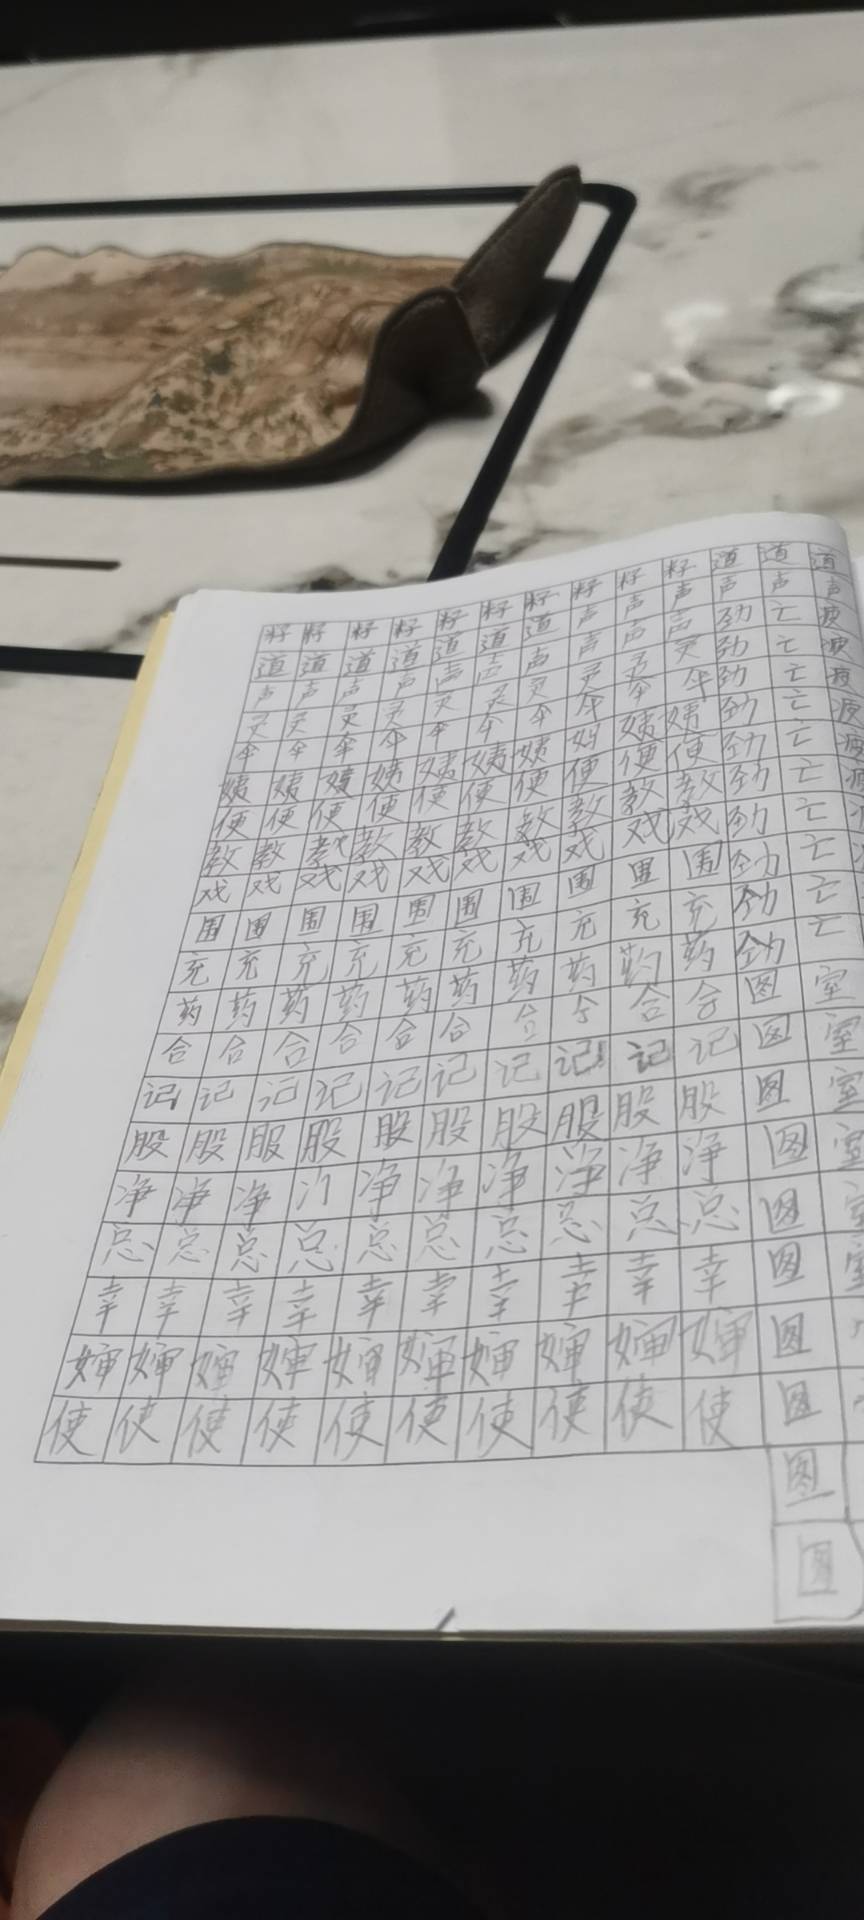 籽 籽 籽 籽 籽 籽 籽 籽 籽 籽 道 道 道
道 道 道 道 道 道 道 声 声 声 声 声 声
声 声 声 声 声 声 声 声 声 声 劲 亡 疲
灵 灵 灵 灵 灵 灵 灵 灵 灵 灵 劲 亡 疲
伞 伞 伞 伞 伞 伞 伞 伞 伞 伞 劲 亡 疲
姨 姨 姨 姨 姨 姨 姨 姨 姨 劲 亡 疲
便 便 便 便 便 便 便 便 便 便 劲 亡 疲
教 教 教 教 教 教 教 教 教 教 劲 亡
戏 戏 戏 戏 戏 戏 戏 戏 戏 戏 劲 亡
围 围 围 围 围 围 围 围 围 围 劲 亡
充 充 充 充 充 充 充 充 充 充 劲 亡
药 药 药 药 药 药 药 药 药 药 图 室
合 合 合 合 合 合 合 合 合 图 室
记 记 记 记 记 记 记 记 记 记 图 室
股 股 股 股 股 股 股 股 股 股 图 室
净 净 净 净 净 净 净 净 净 图 室
总 总 总 总 总 总 总 总 总 总 图 室
幸 幸 幸 幸 幸 幸 幸 幸 幸 幸 图
婶 婶 婶 婶 婶 婶 婶 婶 婶 婶 图
使 使 使 使 使 使 使 使 使 使 图
图
图